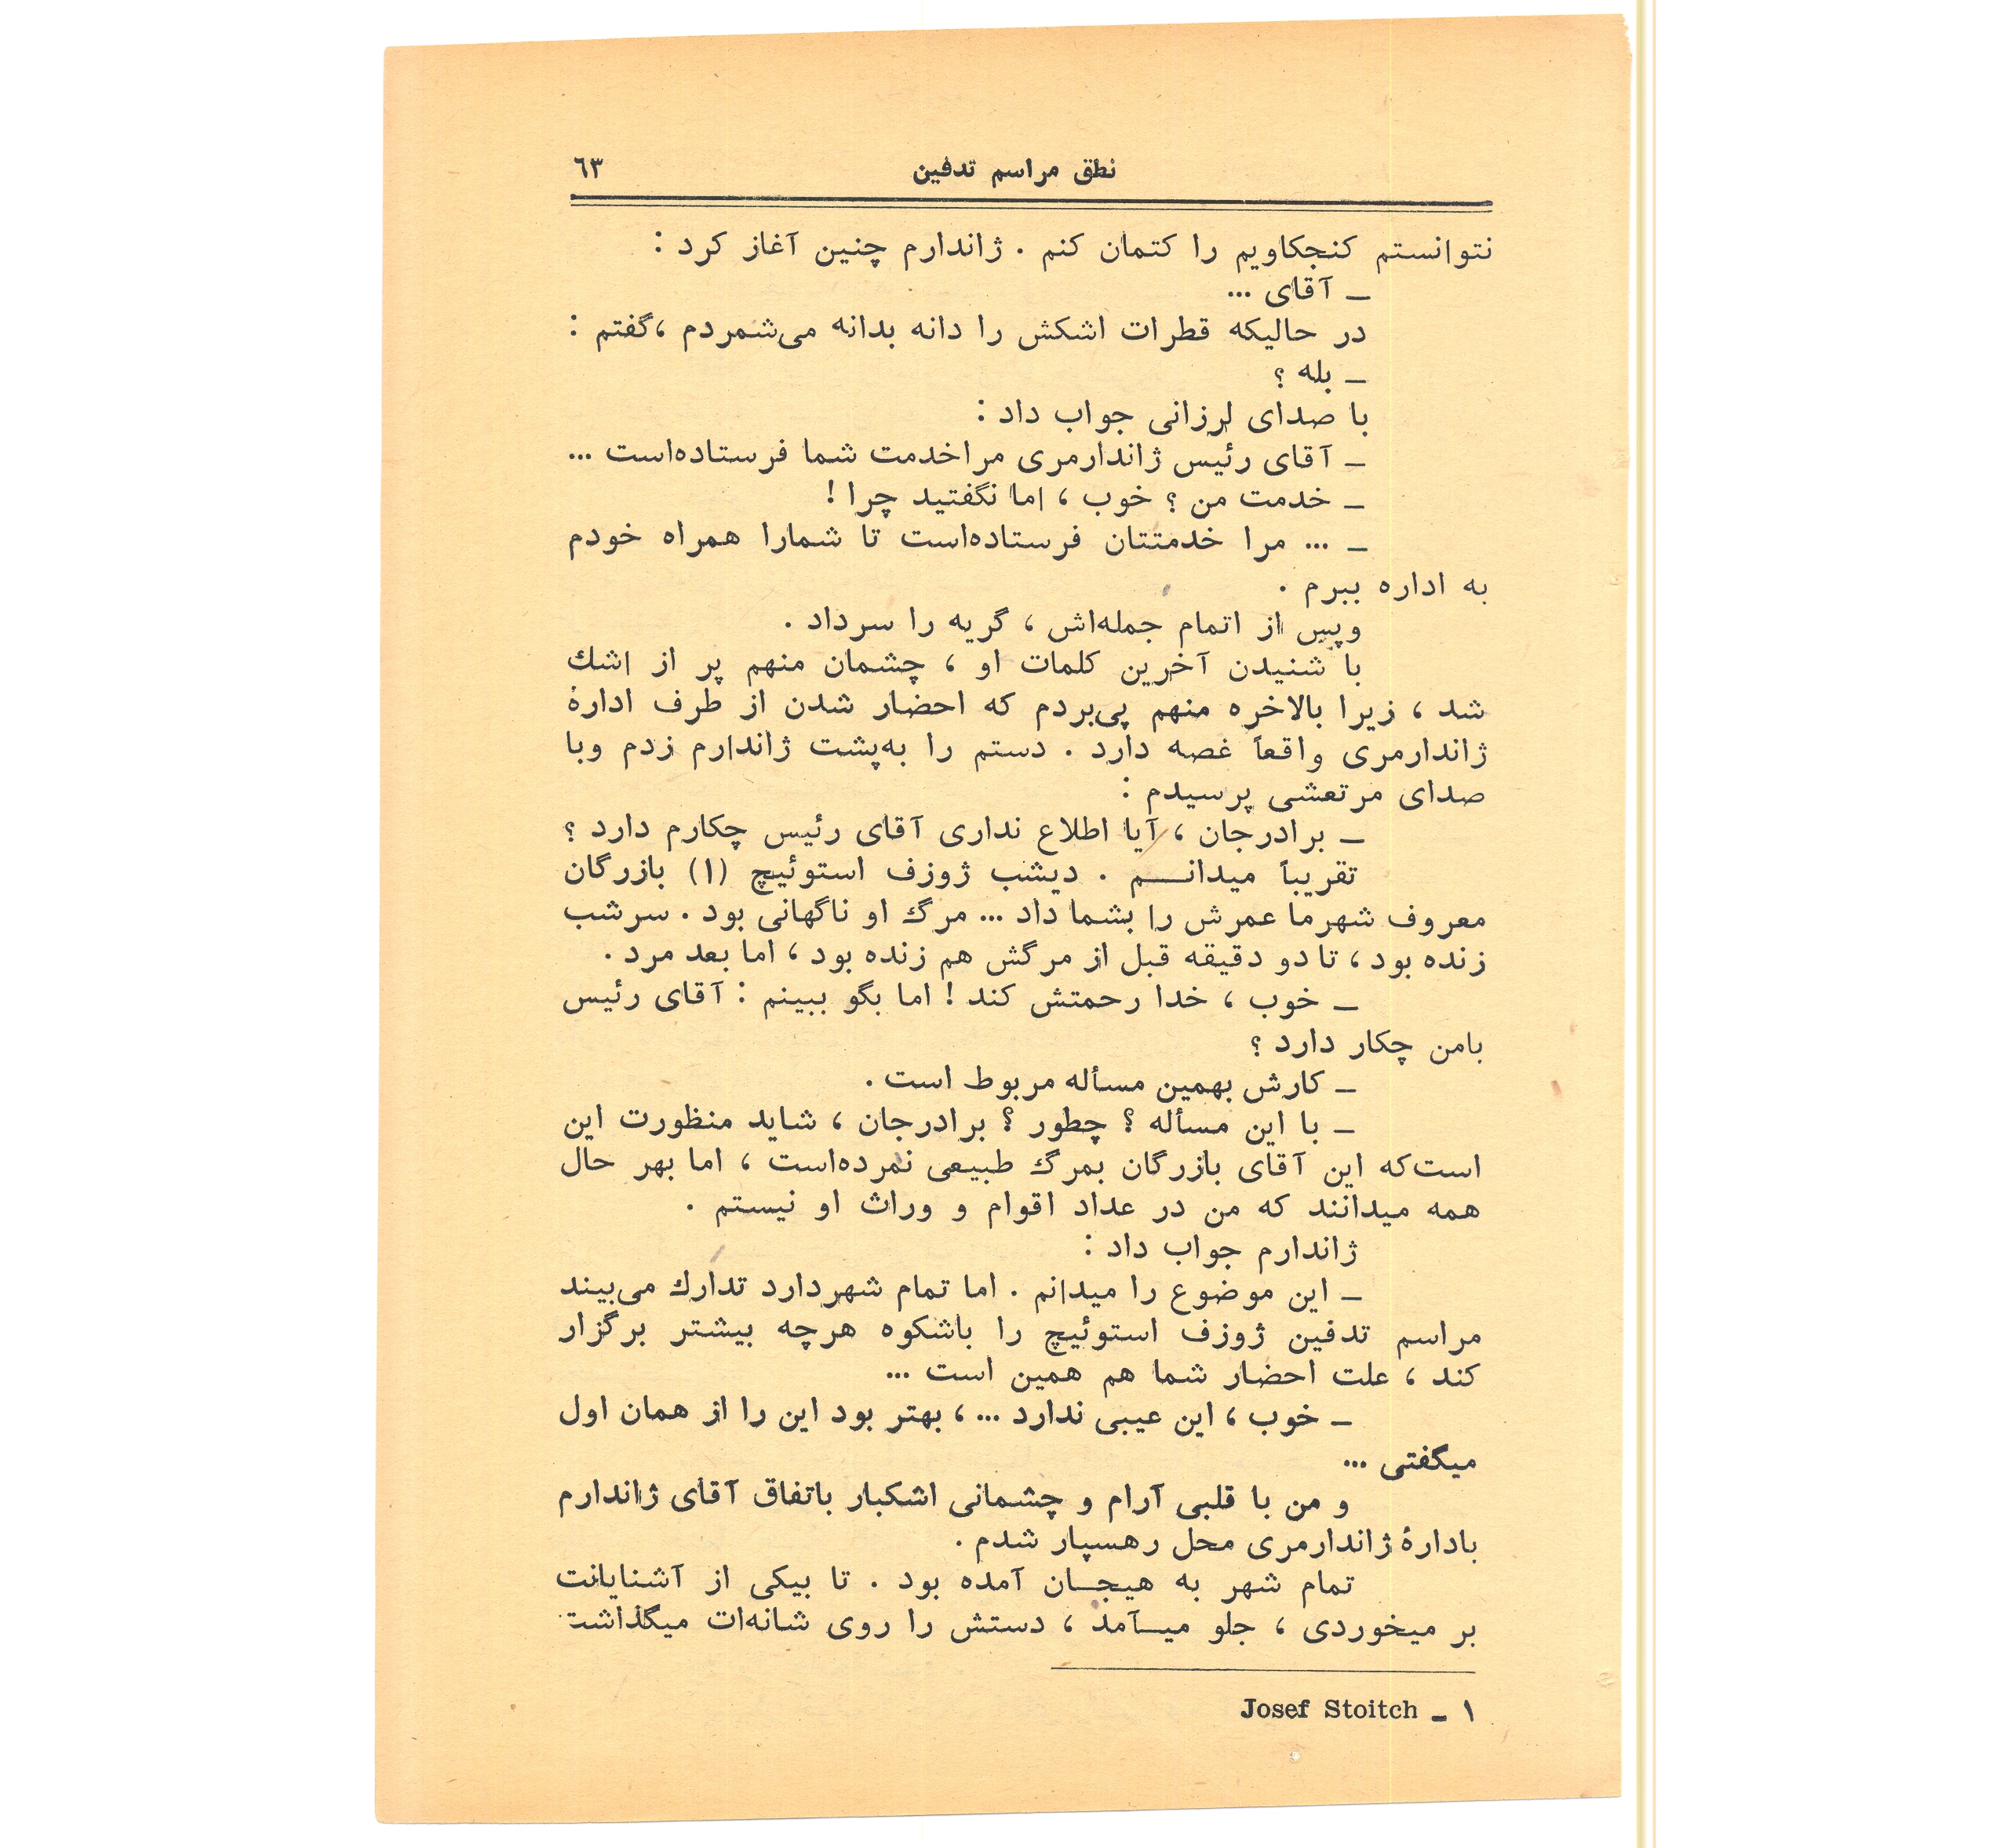 نطق مراسم تدفین ٦٣
نتوانستم کنجکاویم را کتمان کنم . ژاندارم چنین آغاز کرد :
ـ آقای ...
در حالیکه قطرات اشکش را دانه بدانه می‌شمردم ،گفتم :
ـ بله ؟
با صدای لرزانی جواب داد :
ـ آقای رئیس ژاندارمری مراخدمت شما فرستاده‌است ...
ـ خدمت من ؟ خوب ، اما نگفتید چرا !
ـ ... مرا خدمتتان فرستاده‌است تا شمارا همراه خودم
به اداره ببرم .
وپس از اتمام جمله‌اش ، گریه را سرداد .
با شنیدن آخرین کلمات او ، چشمان منهم پر از اشك
شد ، زیرا بالاخره منهم پی‌بردم که احضار شدن از طرف ادارهٔ
ژاندارمری واقعاً غصه دارد . دستم را به‌پشت ژاندارم زدم وبا
صدای مرتعشی پرسیدم :
ـ برادرجان ، آیا اطلاع نداری آقای رئیس چکارم دارد ؟
تقریباً میدانـــم . دیشب ژوزف استوئیچ (۱) بازرگان
معروف شهرما عمرش را بشما داد ... مرگ او ناگهانی بود . سرشب
زنده بود ، تا دو دقیقه قبل از مرگش هم زنده بود ، اما بعد مرد .
ـ خوب ، خدا رحمتش کند ! اما بگو ببینم : آقای رئیس
بامن چکار دارد ؟
ـ کارش بهمین مسأله مربوط است .
ـ با این مسأله ؟ چطور ؟ برادرجان ، شاید منظورت این
است‌که این آقای بازرگان بمرگ طبیعی نمرده‌است ، اما بهر حال
همه میدانند که من در عداد اقوام و وراث او نیستم .
ژاندارم جواب داد :
ـ این موضوع را میدانم . اما تمام شهردارد تدارك می‌بیند
مراسم تدفین ژوزف استوئیچ را باشکوه هرچه بیشتر برگزار
کند ، علت احضار شما هم همین است ...
ـ خوب ، این عیبی ندارد ... ، بهتر بود این را از همان اول
میگفتی ...
و من با قلبی آرام و چشمانی اشکبار باتفاق آقای ژاندارم
بادارهٔ ژاندارمری محل رهسپار شدم .
تمام شهر به هیجـان آمده بود . تا بیکی از آشنایانت
بر میخوردی ، جلو میـآمد ، دستش را روی شانه‌ات میگذاشت
۱ ـ Josef Stoitch